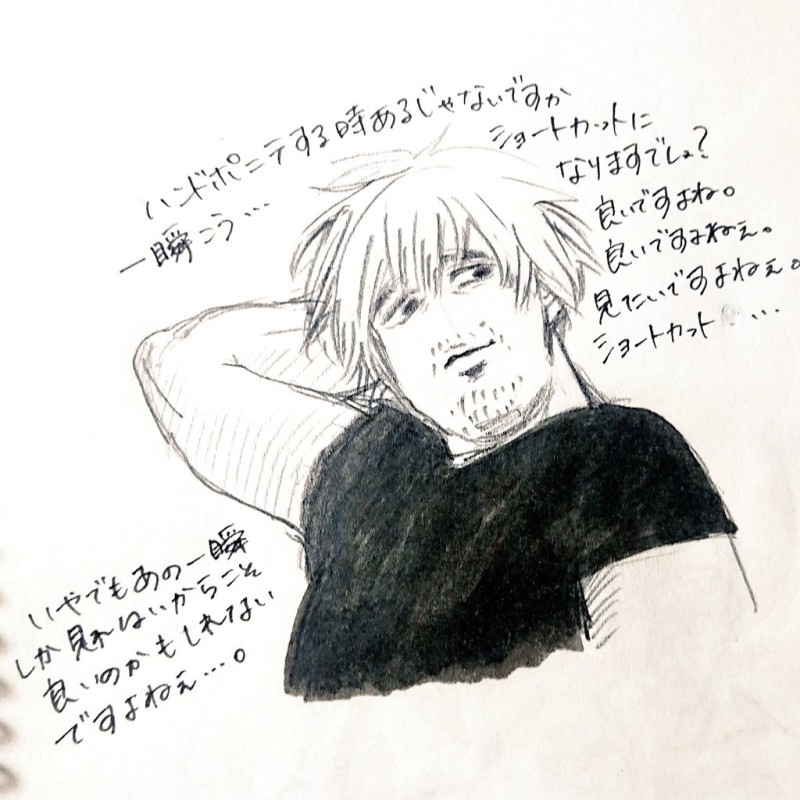 ハンドポニテする時あるじゃないですか
一瞬こう…
ショートカットに
なりますでしょ?
良いですよね。
良いですよねぇ。
見たいですよねぇ。
ショートカット…
いやでもあの一瞬
しか見れないからこそ
良いのかもしれない
ですよねぇ…。